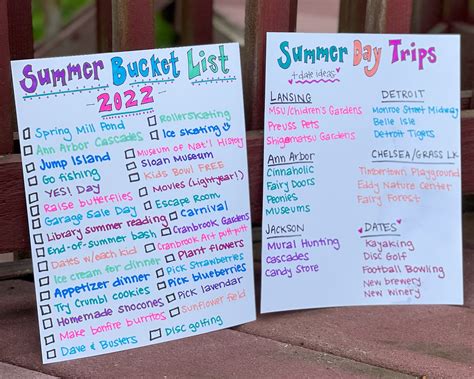 Summer Bucket List
2022
Spring Mill Pond
Ann Arbor Cascades
Jump Island
Go fishing
YES! Day
Raise butterflies
Garage Sale Day
Library summer reading
End-of-summer bash
Dates w/each kid
Ice cream for dinner
Appetizer dinner
Try Crumbl cookies
Homemade snocones
Make bonfire burritos
Dave & Busters
Rollerskating
Ice skating
Museum of Nat'l History
Sloan Museum
Kids Bowl FREE
Movies (Lightyear!)
Escape Room
Carnival
Cranbrook Gardens
Cranbrook Art
Plant flowers
Pick Strawberries
Pick blueberries
Pick lavendar
Sunflower field
Disc golfing
Summer Day Trips
+ date ideas
LANSING
MSU/Chidren's Gardens
Preuss Pets
Shigematsu Gardens
Ann Arbor
Cinnaholic
Fairy Doors
Peonies
Museums
JACKSON
Mural Hunting
Cascades
Candy Store
DETROIT
Monroe Street Midway
Belle Isle
Detroit Tigers
CHELSEA/GRASS LK
Timbertown Playground
Eddy Nature Center
Fairy Forest
DATES
Kayaking
Disc Golf
Football Bowling
New brewery
New Winery